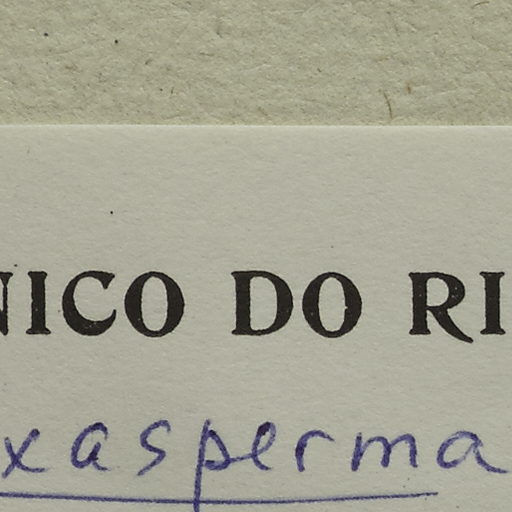 NICO DO RI
xasperma